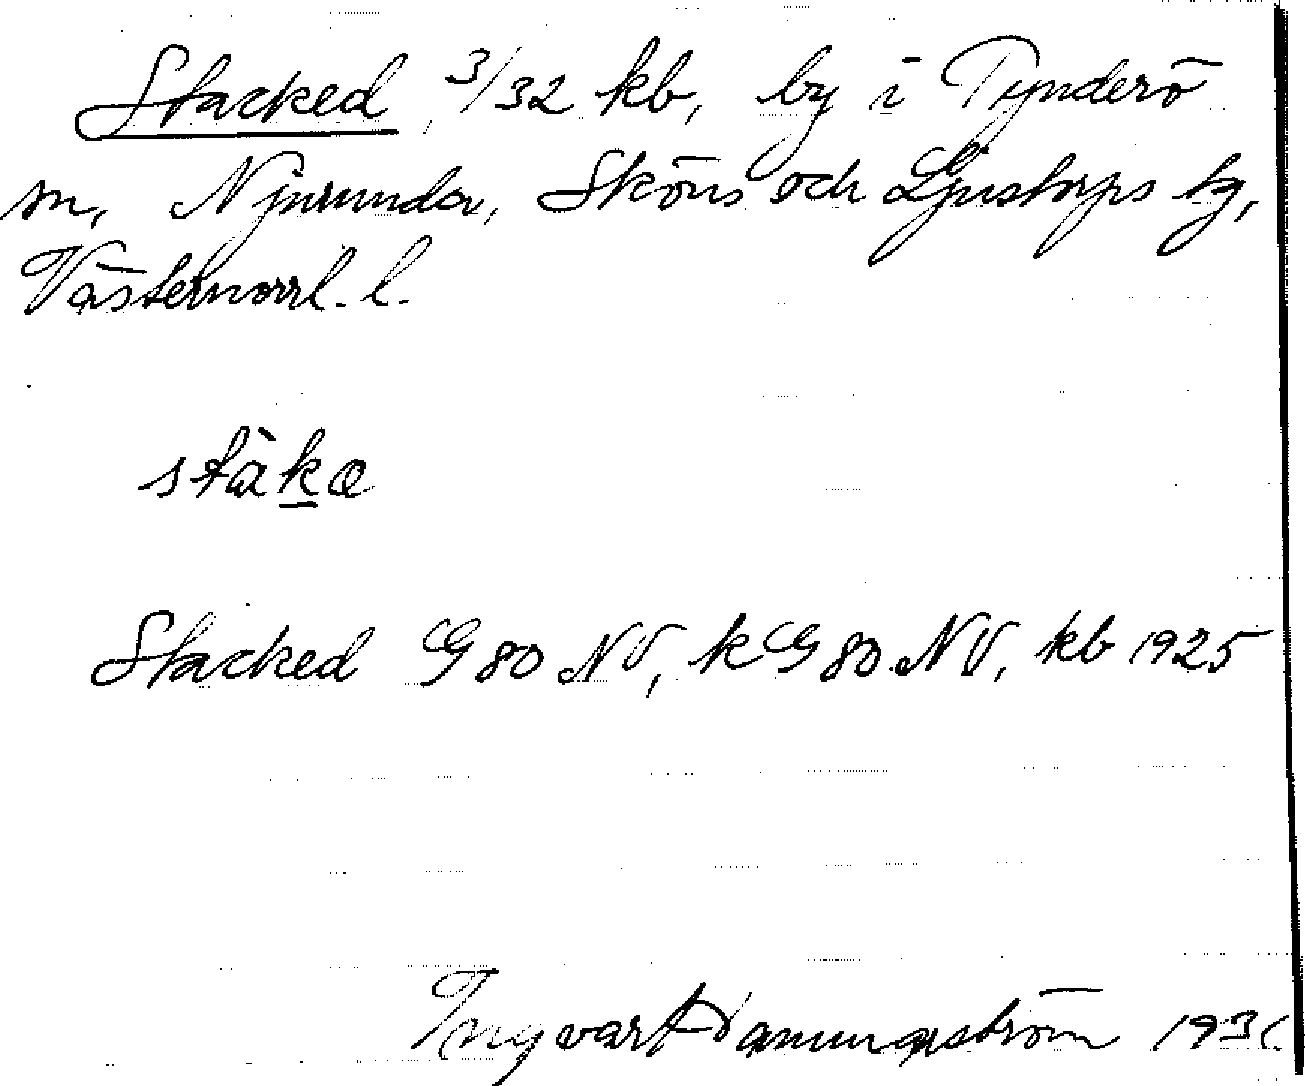 Stacked, 3/32 kb, by i Tynderö
sn, Njurunda, Sköns och Ljustorps tg,
Västernorrl. l.
stàkə
Stacked G 80 NV, k G 80 NV, kb 1925
Ingvar